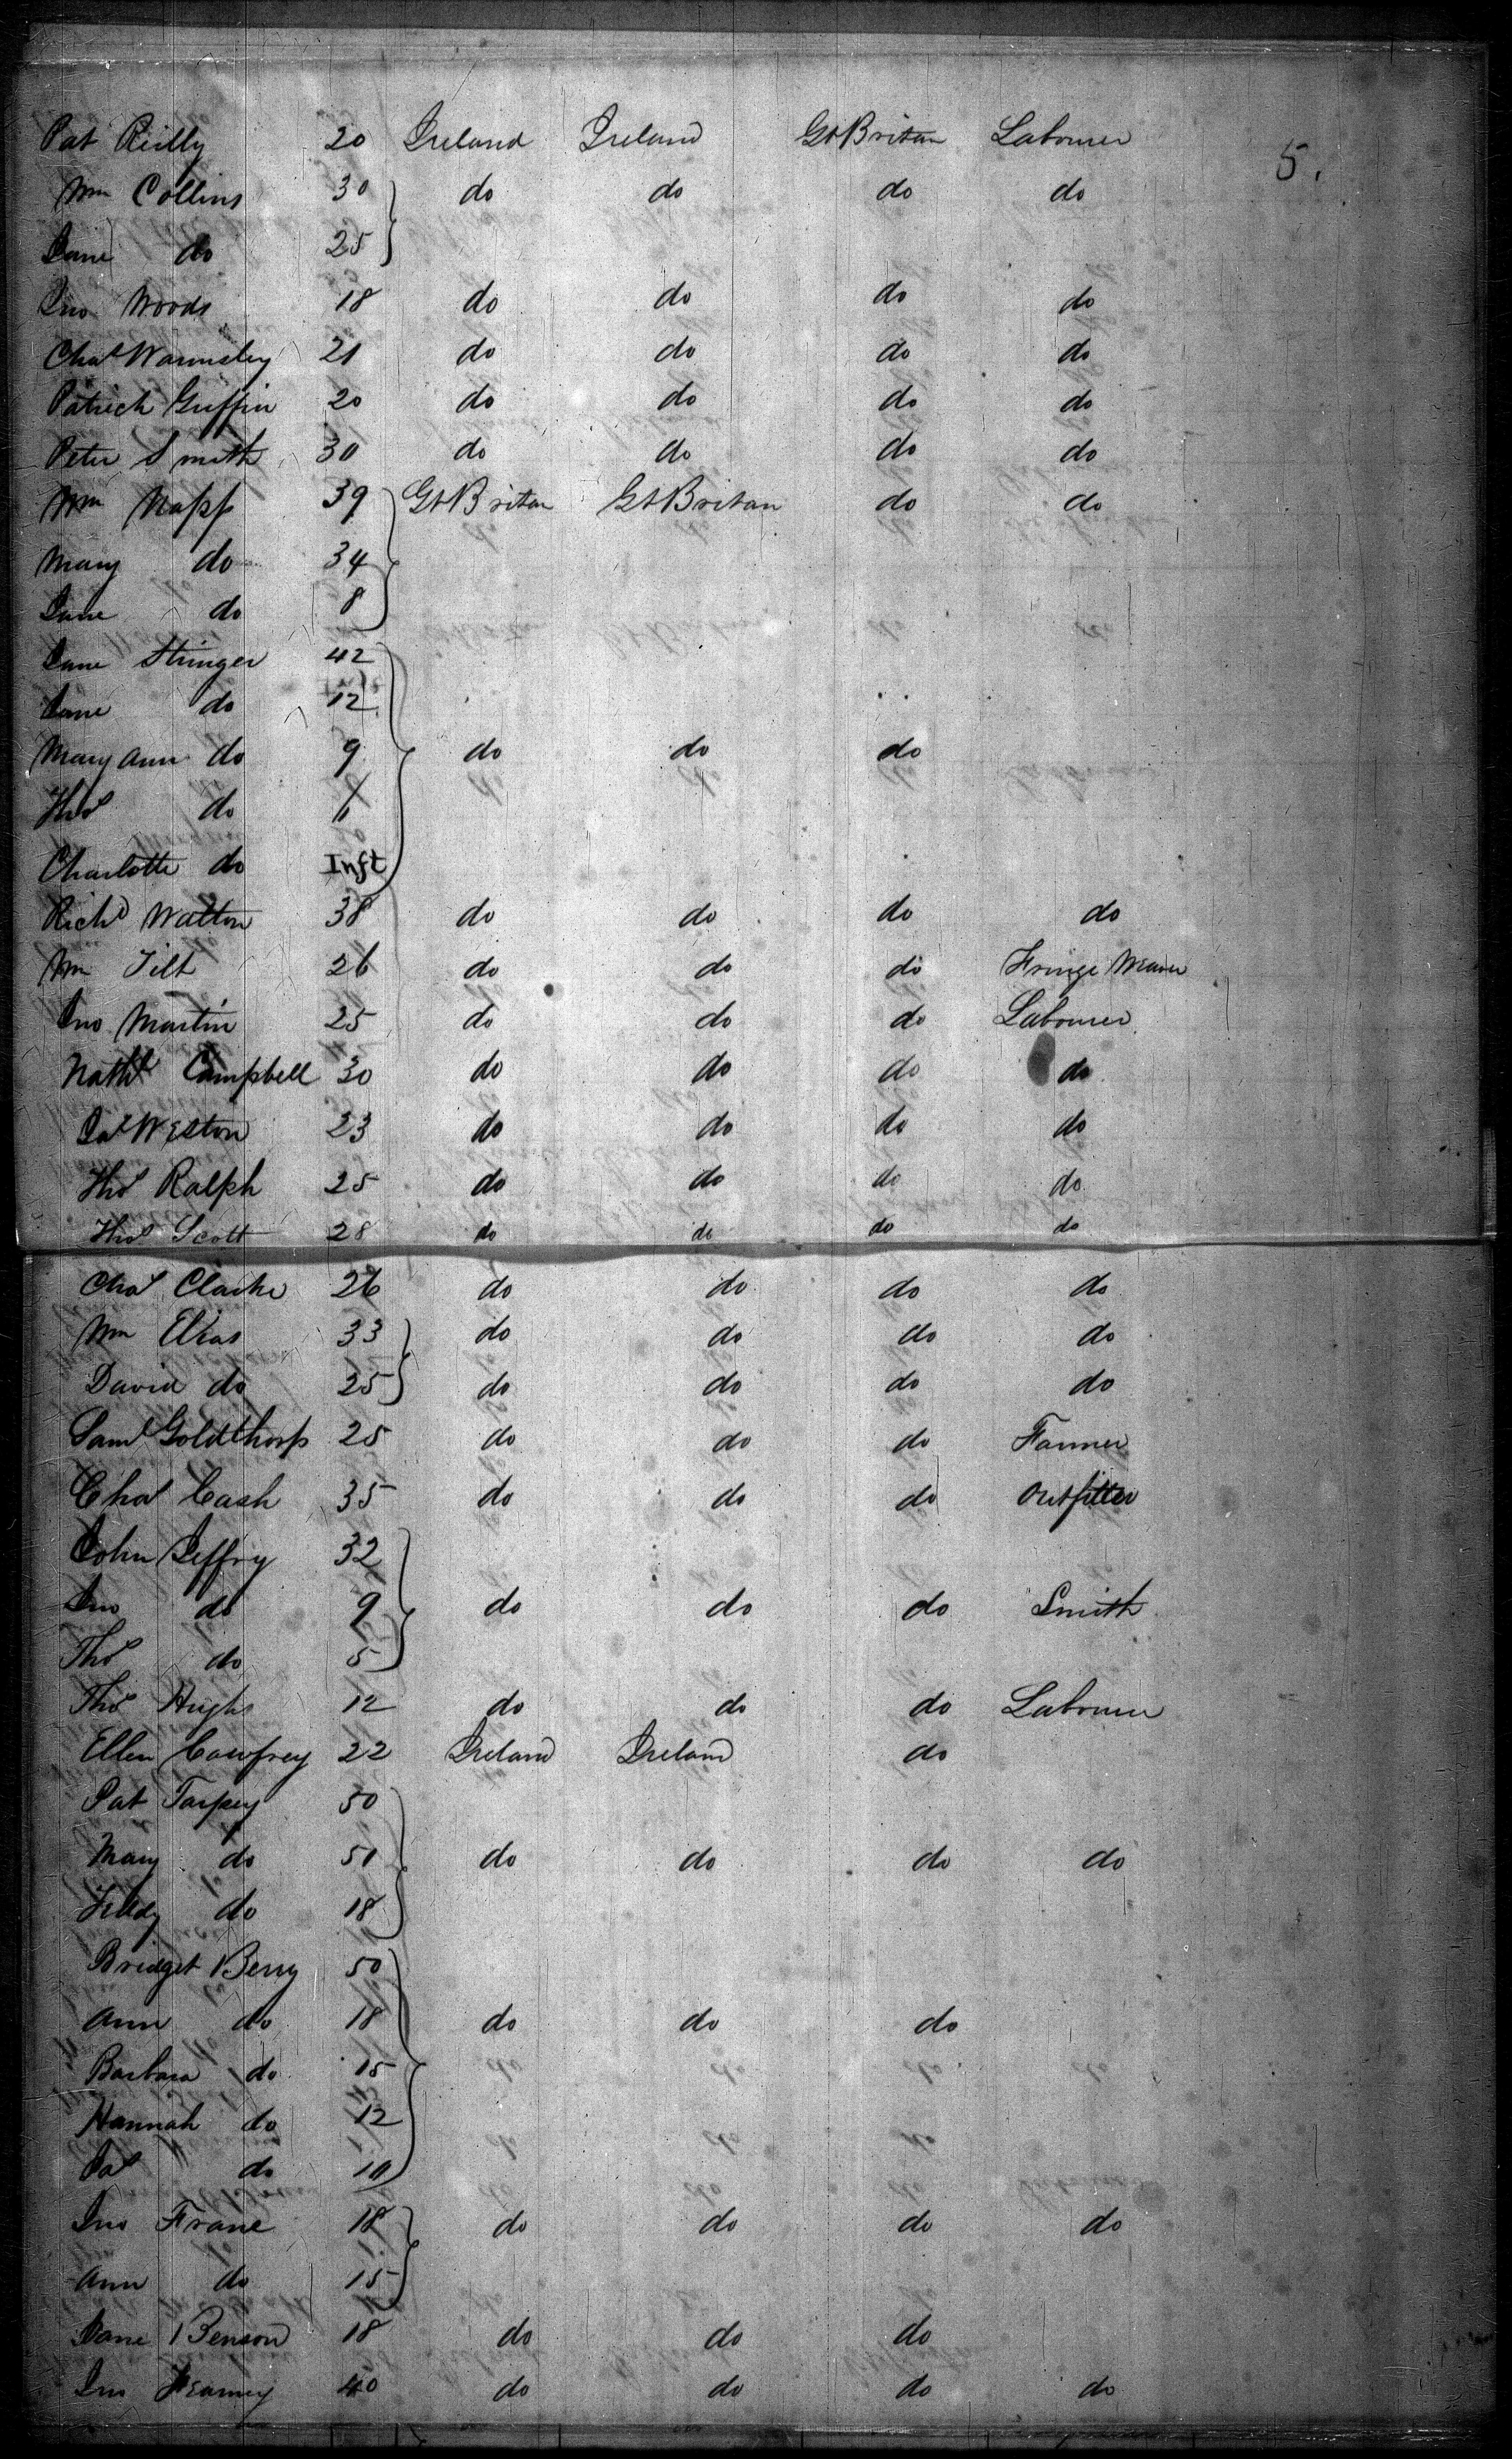 Pat Reilly 20 Ireland Ireland Gt Britan Labourer 5.
Wm Collins 30 do do do do
Jane do 25
Jno Woods 18 do do do do
Chas Warmsley 21 do do do do
Patrick Griffin 20 do do do do
Peter Smith 30 do do do do
Wm Napp 39 Gt Britan Gt Britan do do
Mary do 34
Jane do 8
Jane Stringer 42
Jane do 12
Mary Ann do 9 do do do
Thos do 6
Charlotte do Inft
Richd Walton 38 do do do do
Wm Tilt 26 do do do Fringe Weaver
Jno Martin 25 do do do Labourer
Nathl Campbell 30 do do do do
Jas Weston 23 do do do do
Thos Ralph 25 do do do do
Thos Scott 28 do do do do
Chas Clarke 26 do do do do
Wm Elias 33 do do do do
David do 25 do do do do
Saml Goldthorp 25 do do do Farmer
Chas Cash 35 do do do Outfitter
John Jeffry 32
Jno do 9 do do do Smith
Thos do 5
Thos Hughs 12 do do do Labourer
Ellen Cawfrey 22 Ireland Ireland do
Pat Tarpey 50
Mary do 51 do do do do
Teddy do 18
Bridget Berry 50
Ann do 18 do do do
Barbara do 15
Hannah do 12
Pat do 10
Jno Frane 18 do do do do
Ann do 15
Jane Benson 18 do do do
Jno Kearney 40 do do do do